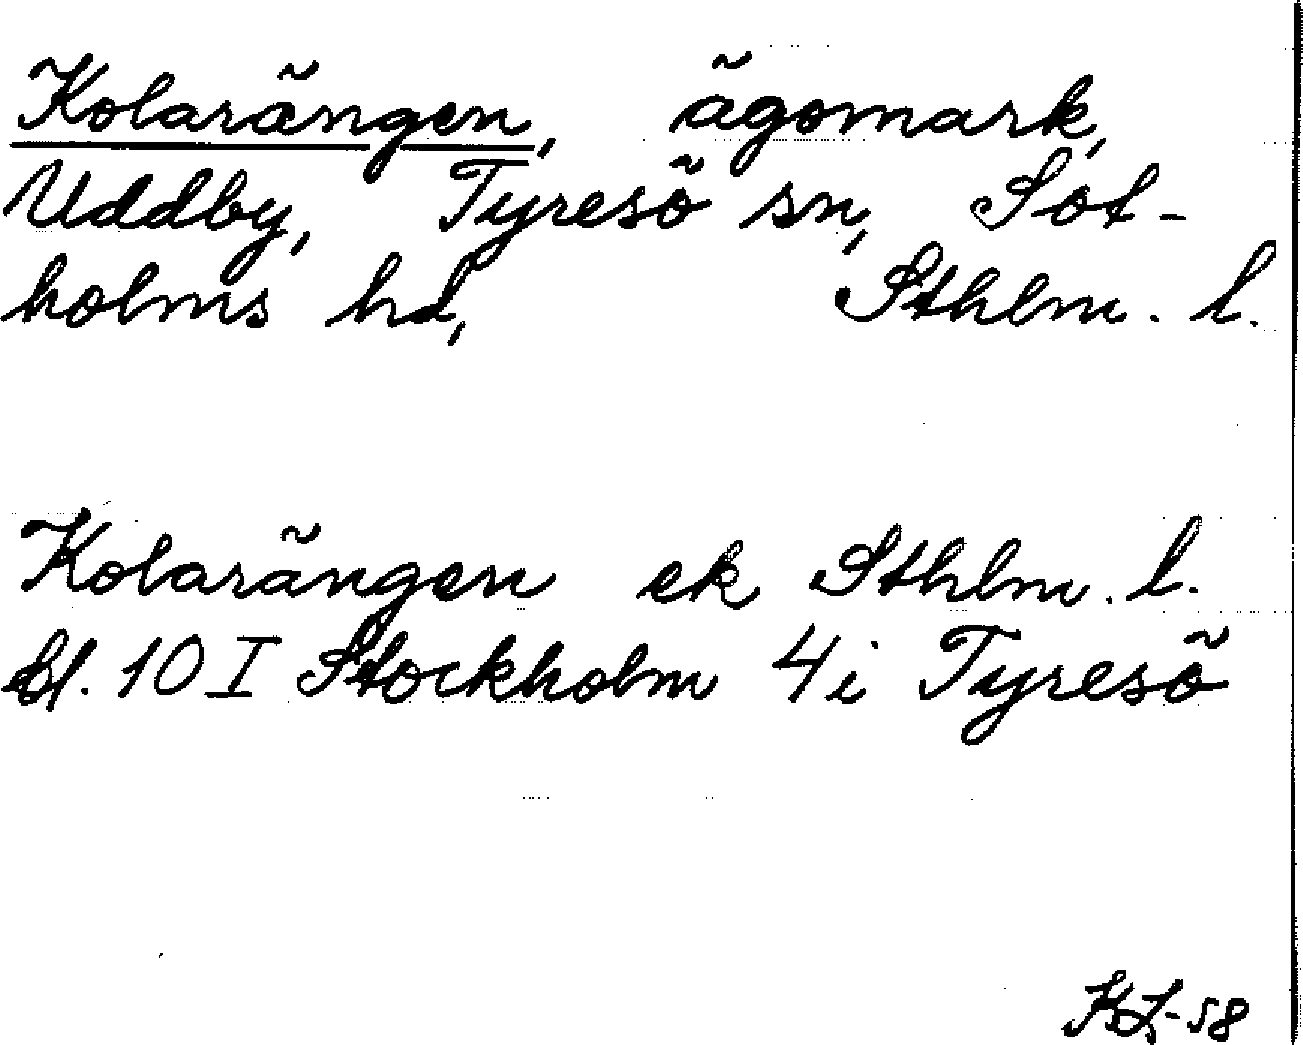 Kolarängen, ägomark,
Uddby, Tyresö sn, Sot-
holms hd, Sthlm. l.
Kolarängen ek Sthlm. l.
bl. 10 I Stockholm 4i Tyresö
KL-58